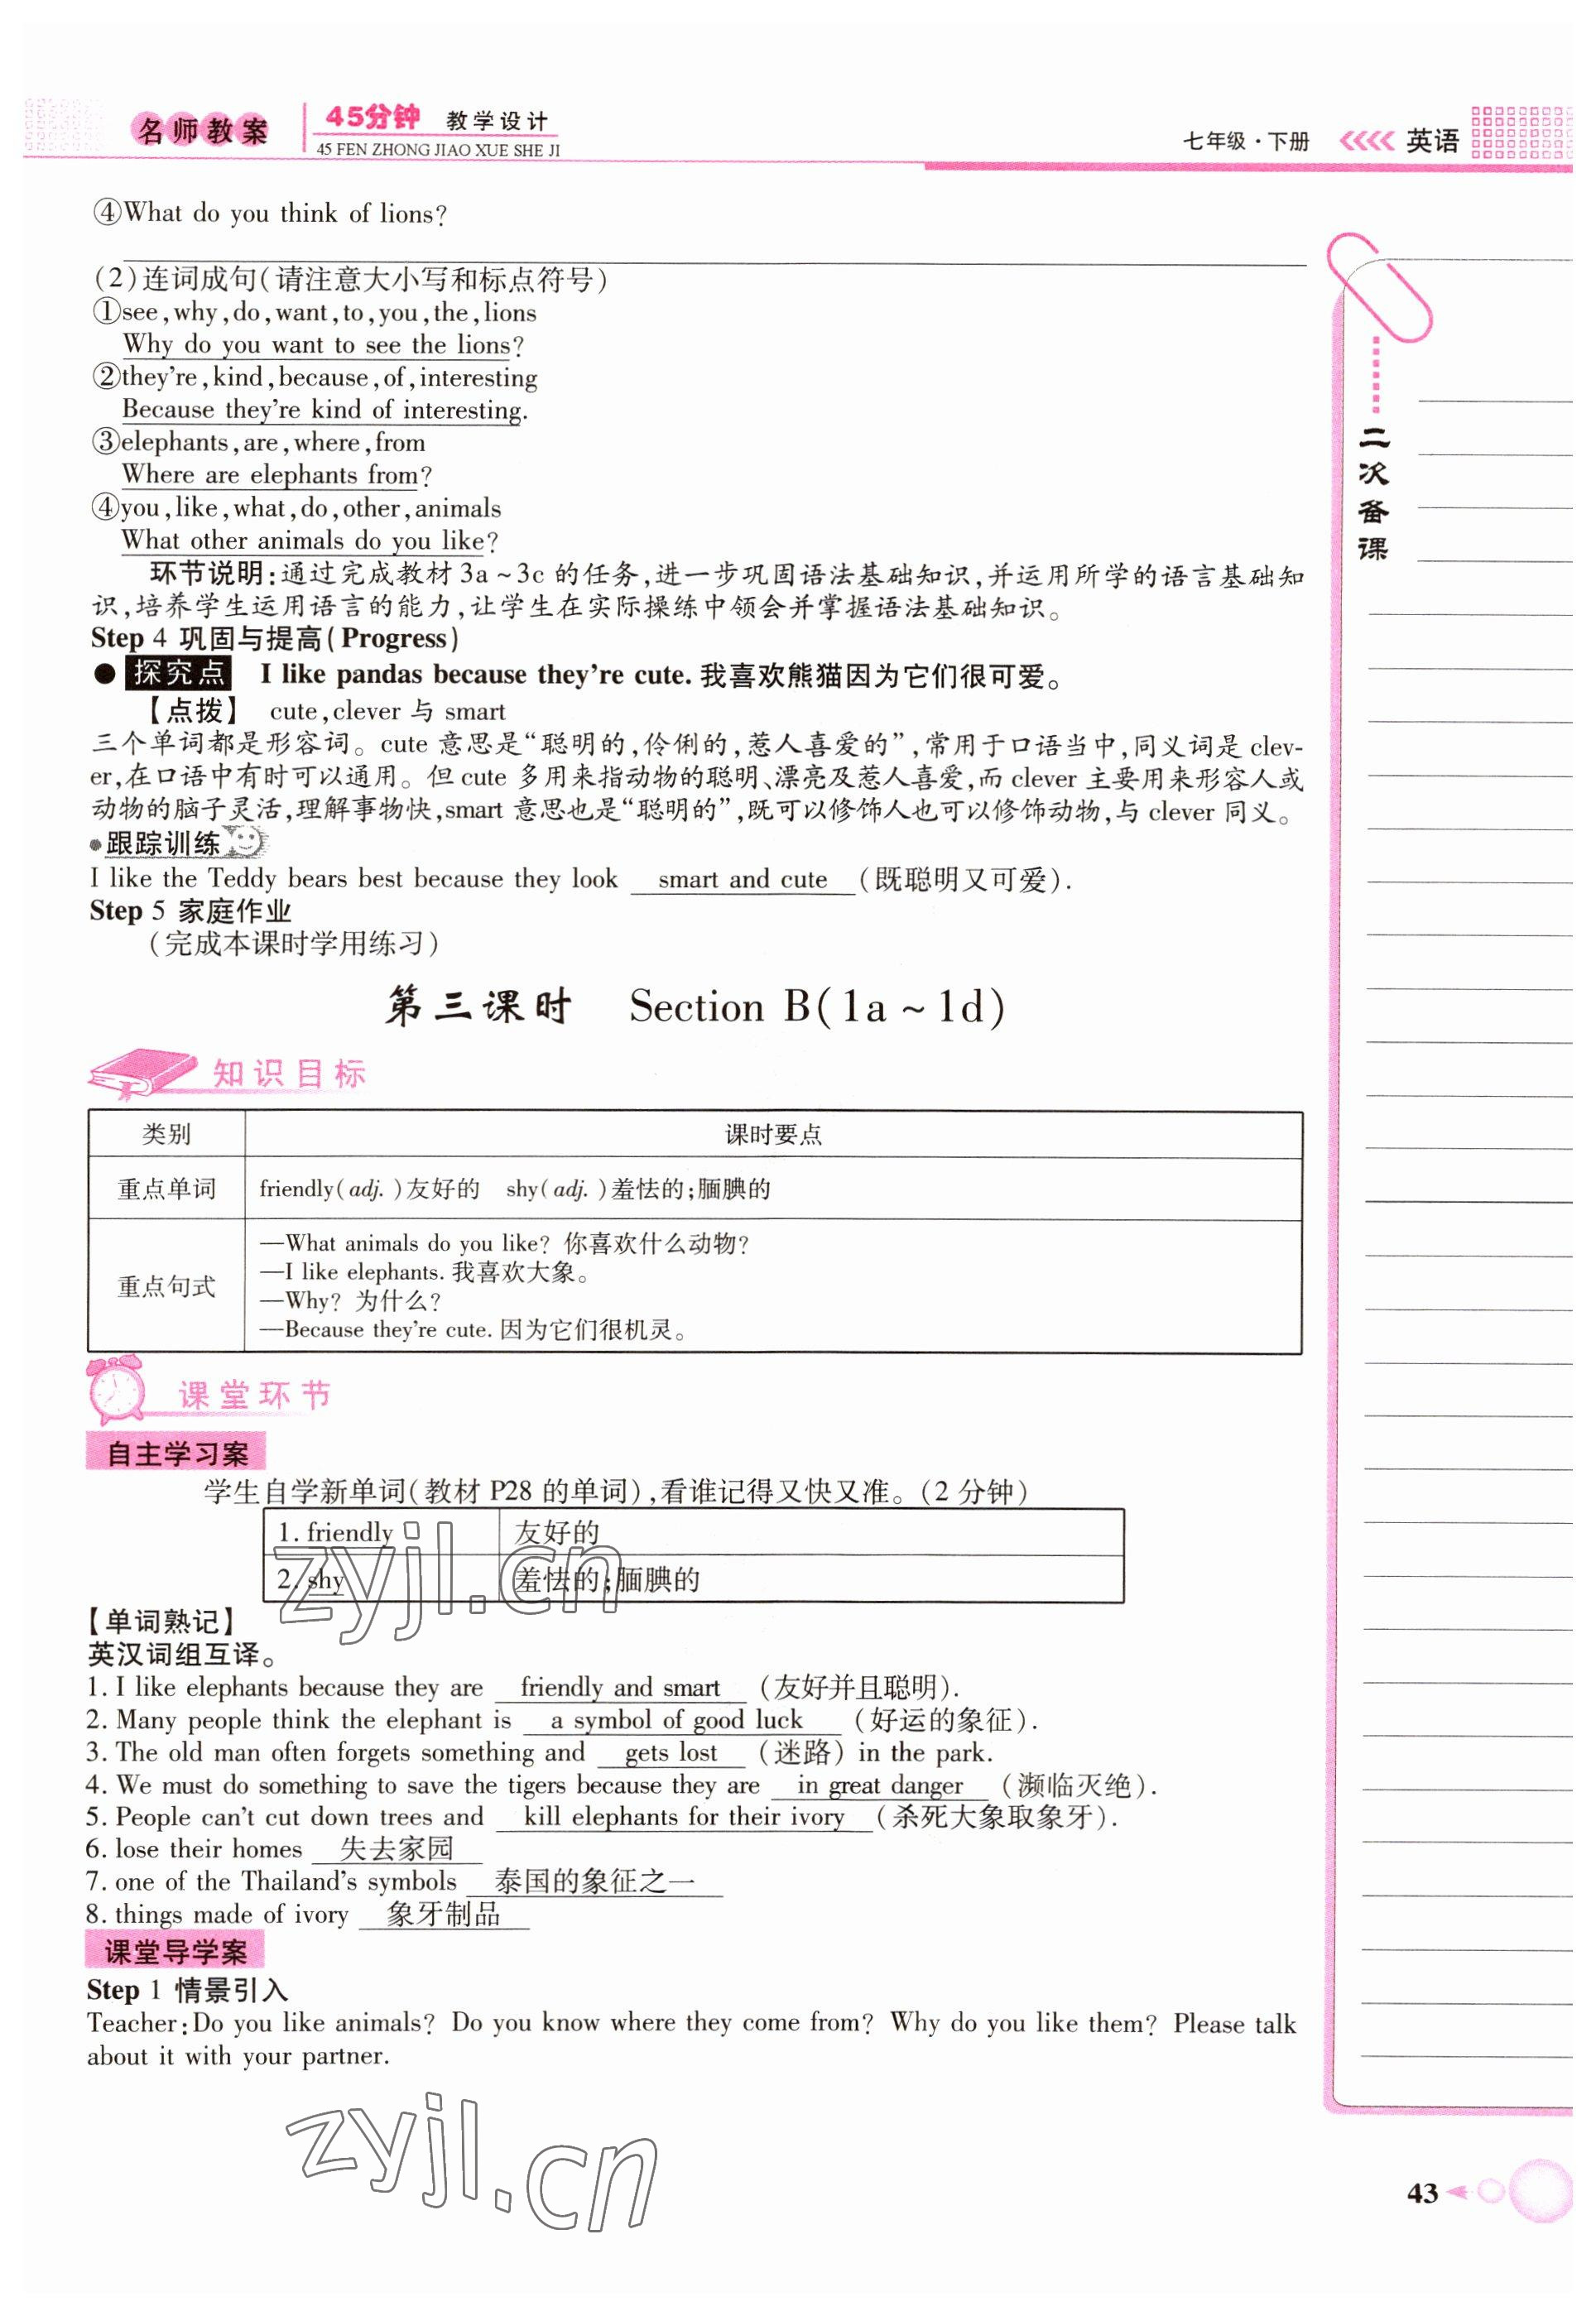 名师教案 45分钟 教学设计
45 FEN ZHONG JIAO XUE SHE JI
七年级·下册 英语
④What do you think of lions?
(2)连词成句(请注意大小写和标点符号)
①see,why,do,want,to,you,the,lions
Why do you want to see the lions?
②they're,kind,because,of,interesting
Because they're kind of interesting.
③elephants,are,where,from
Where are elephants from?
④you,like,what,do,other,animals
What other animals do you like?
环节说明:通过完成教材3a~3c的任务,进一步巩固语法基础知识,并运用所学的语言基础知
识,培养学生运用语言的能力,让学生在实际操练中领会并掌握语法基础知识。
Step 4 巩固与提高(Progress)
●探究点 I like pandas because they're cute.我喜欢熊猫因为它们很可爱。
【点拨】 cute,clever与smart
三个单词都是形容词。cute意思是“聪明的,伶俐的,惹人喜爱的”,常用于口语当中,同义词是clev-
er,在口语中有时可以通用。但cute多用来指动物的聪明、漂亮及惹人喜爱,而clever主要用来形容人或
动物的脑子灵活,理解事物快,smart意思也是“聪明的”,既可以修饰人也可以修饰动物,与clever同义。
跟踪训练
I like the Teddy bears best because they look smart and cute (既聪明又可爱).
Step 5 家庭作业
(完成本课时学用练习)
第三课时 Section B(1a~1d)
知识目标
类别 课时要点
重点单词 friendly(adj.)友好的 shy(adj.)羞怯的;腼腆的
重点句式
—What animals do you like? 你喜欢什么动物?
—I like elephants.我喜欢大象。
—Why? 为什么?
—Because they're cute.因为它们很机灵。
课堂环节
自主学习案
学生自学新单词(教材P28的单词),看谁记得又快又准。(2分钟)
1. friendly 友好的
2. shy 羞怯的;腼腆的
【单词熟记】
英汉词组互译。
1. I like elephants because they are friendly and smart (友好并且聪明).
2. Many people think the elephant is a symbol of good luck (好运的象征).
3. The old man often forgets something and gets lost (迷路) in the park.
4. We must do something to save the tigers because they are in great danger (濒临灭绝).
5. People can't cut down trees and kill elephants for their ivory (杀死大象取象牙).
6. lose their homes 失去家园
7. one of the Thailand's symbols 泰国的象征之一
8. things made of ivory 象牙制品
课堂导学案
Step 1 情景引入
Teacher:Do you like animals? Do you know where they come from? Why do you like them? Please talk
about it with your partner.
二次备课
zyjl.cn
zyjl.cn
43